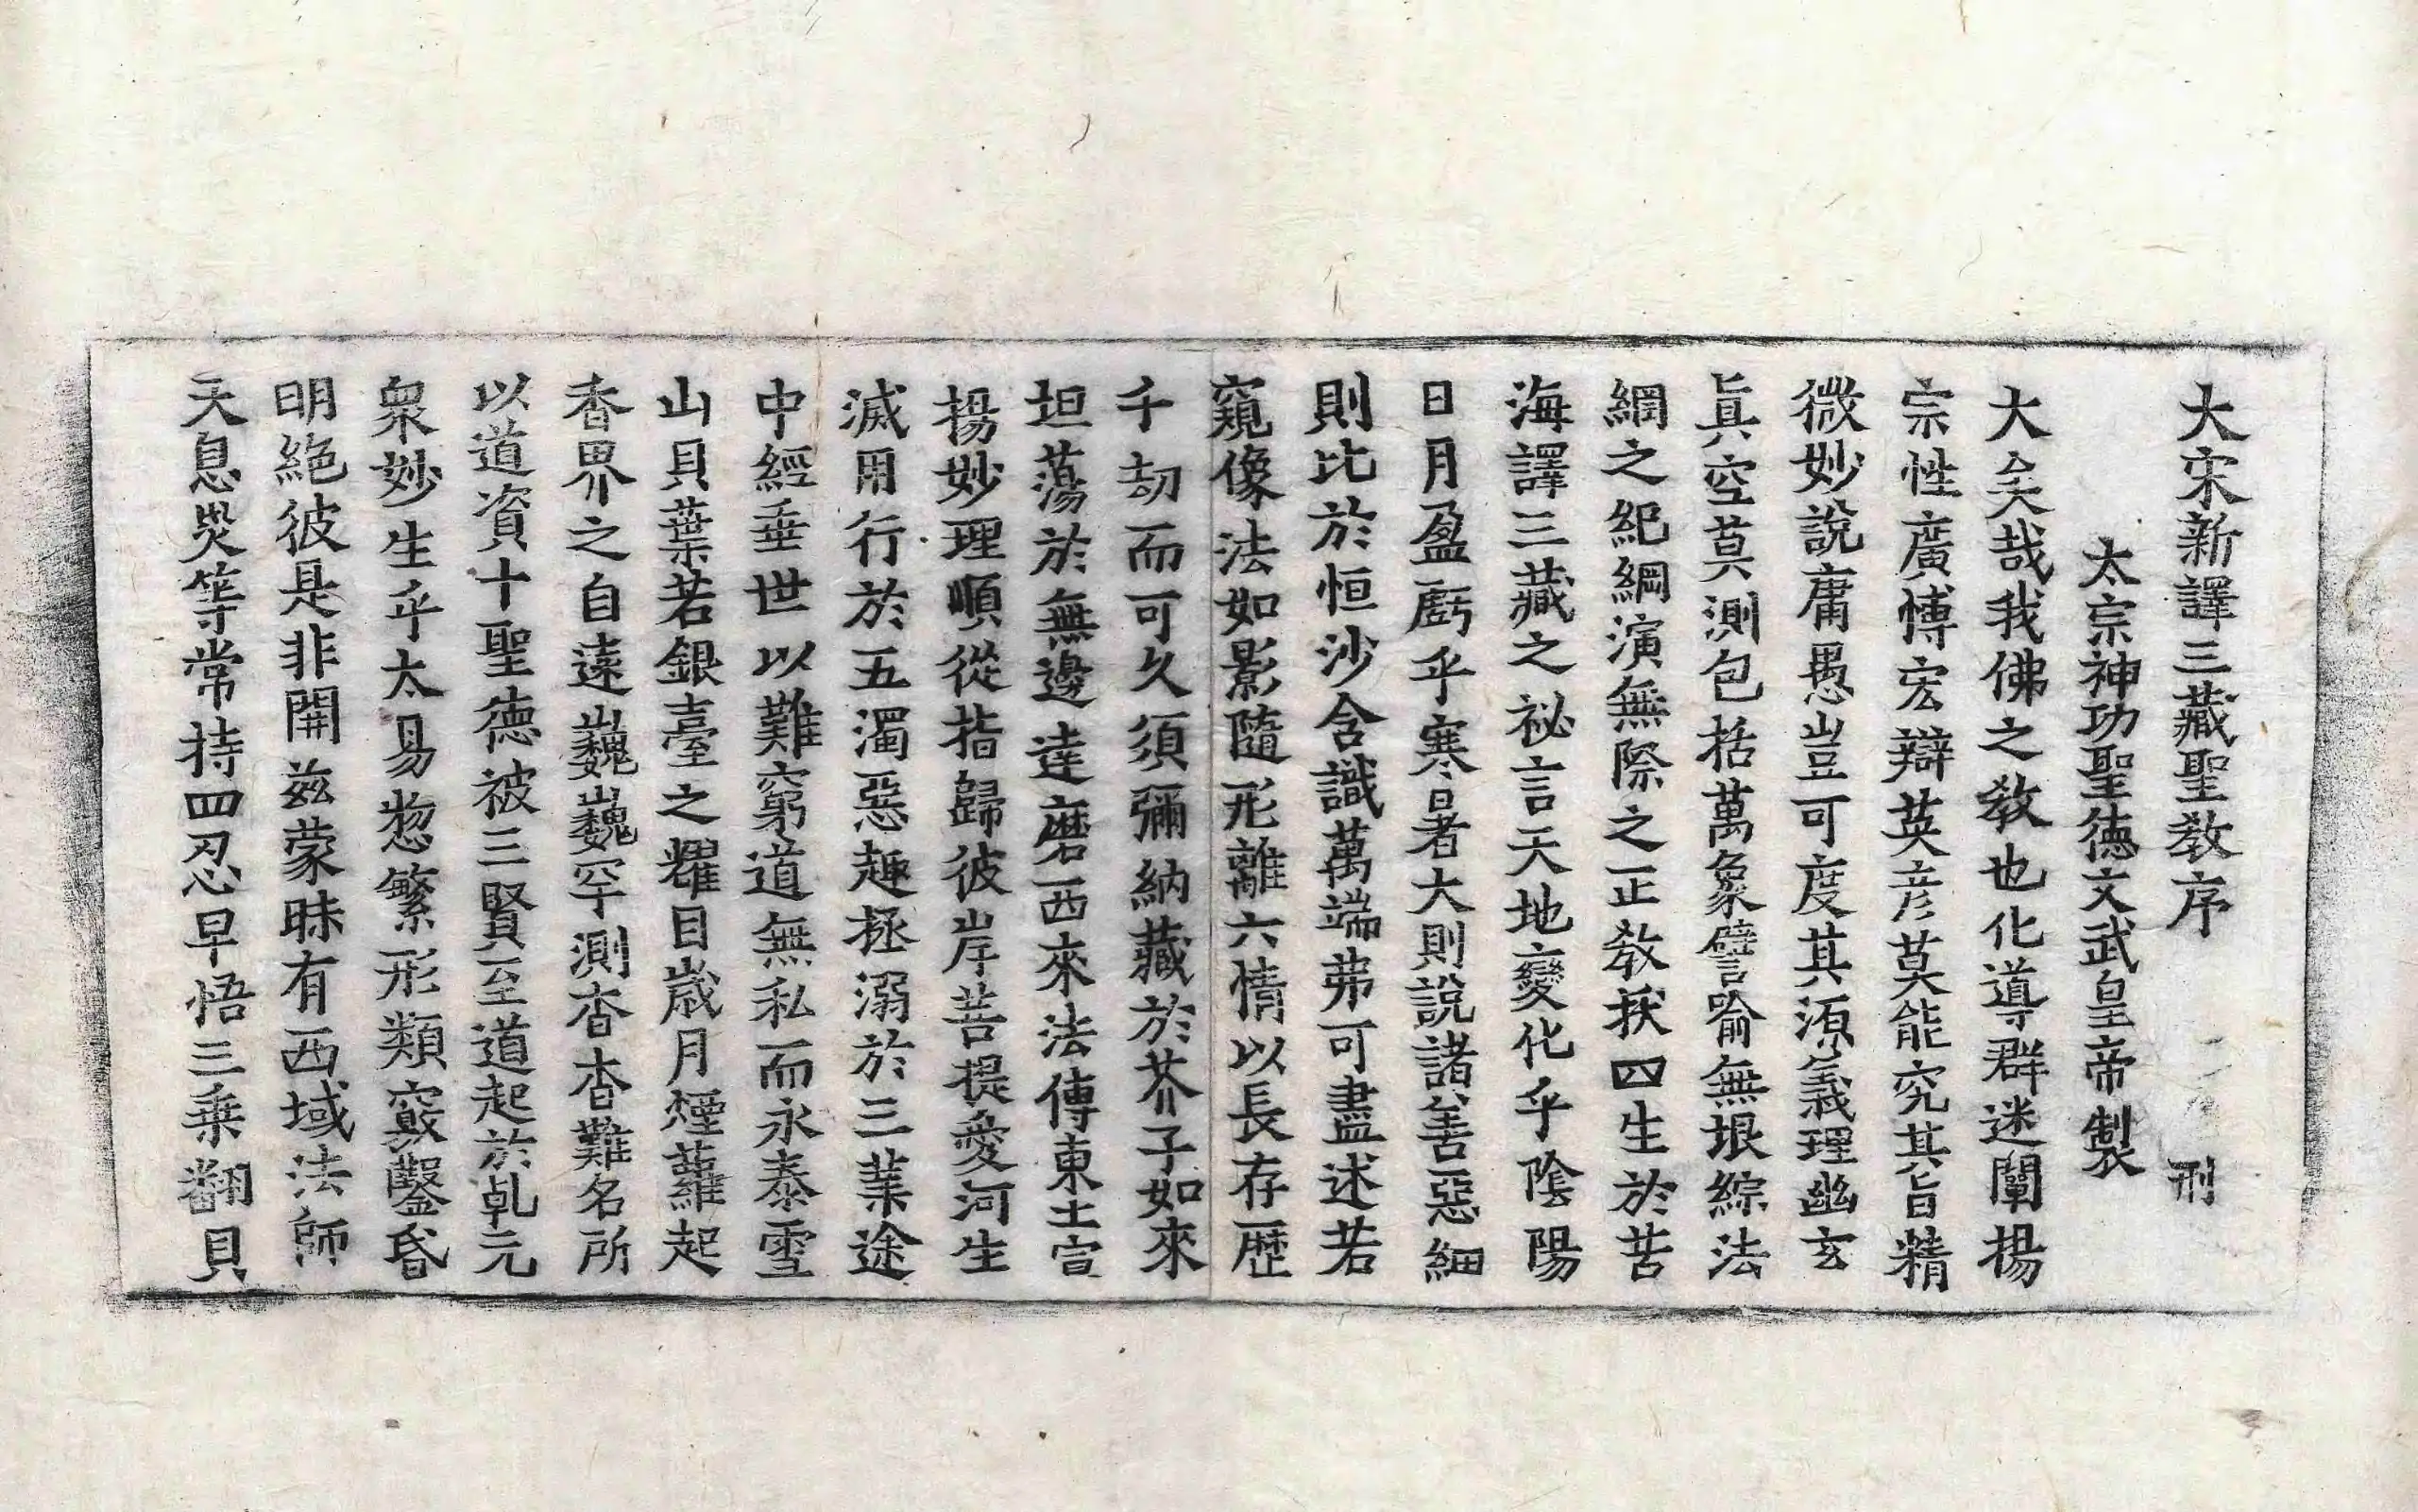 大宋新譯三藏聖教序 刑
太宗神功聖德文武皇帝製
大矣哉我佛之教也化導群迷闡揚
宗性廣博宏辯英彦莫能究其旨精
微妙說庸愚豈可度其源義理幽玄
眞空莫測包括萬象譬喻無垠綜法
網之紀綱演無際之正教拔四生於苦
海譯三藏之祕言天地變化乎陰陽
日月盈虧乎寒暑大則說諸善惡細
則比於恒沙含識萬端弗可盡述若
窺像法如影隨形離六情以長存歷
千劫而可久須彌納藏於芥子如來
坦蕩於無邊達磨西來法傳東土宣
揚妙理順從指歸彼岸菩提愛河生
滅用行於五濁惡趣拯溺於三業途
中經垂世以難窮道無私而永泰雪
山貝葉若銀臺之耀目歲月煙蘿起
香界之自遠巍巍罕測杳杳難名所
以道資十聖德被三賢至道起於乹元
衆妙生乎太易惣繁形類竅鑿昏
明絕彼是非開茲蒙昧有西域法師
天息災等常持四忍早悟三乘翻貝